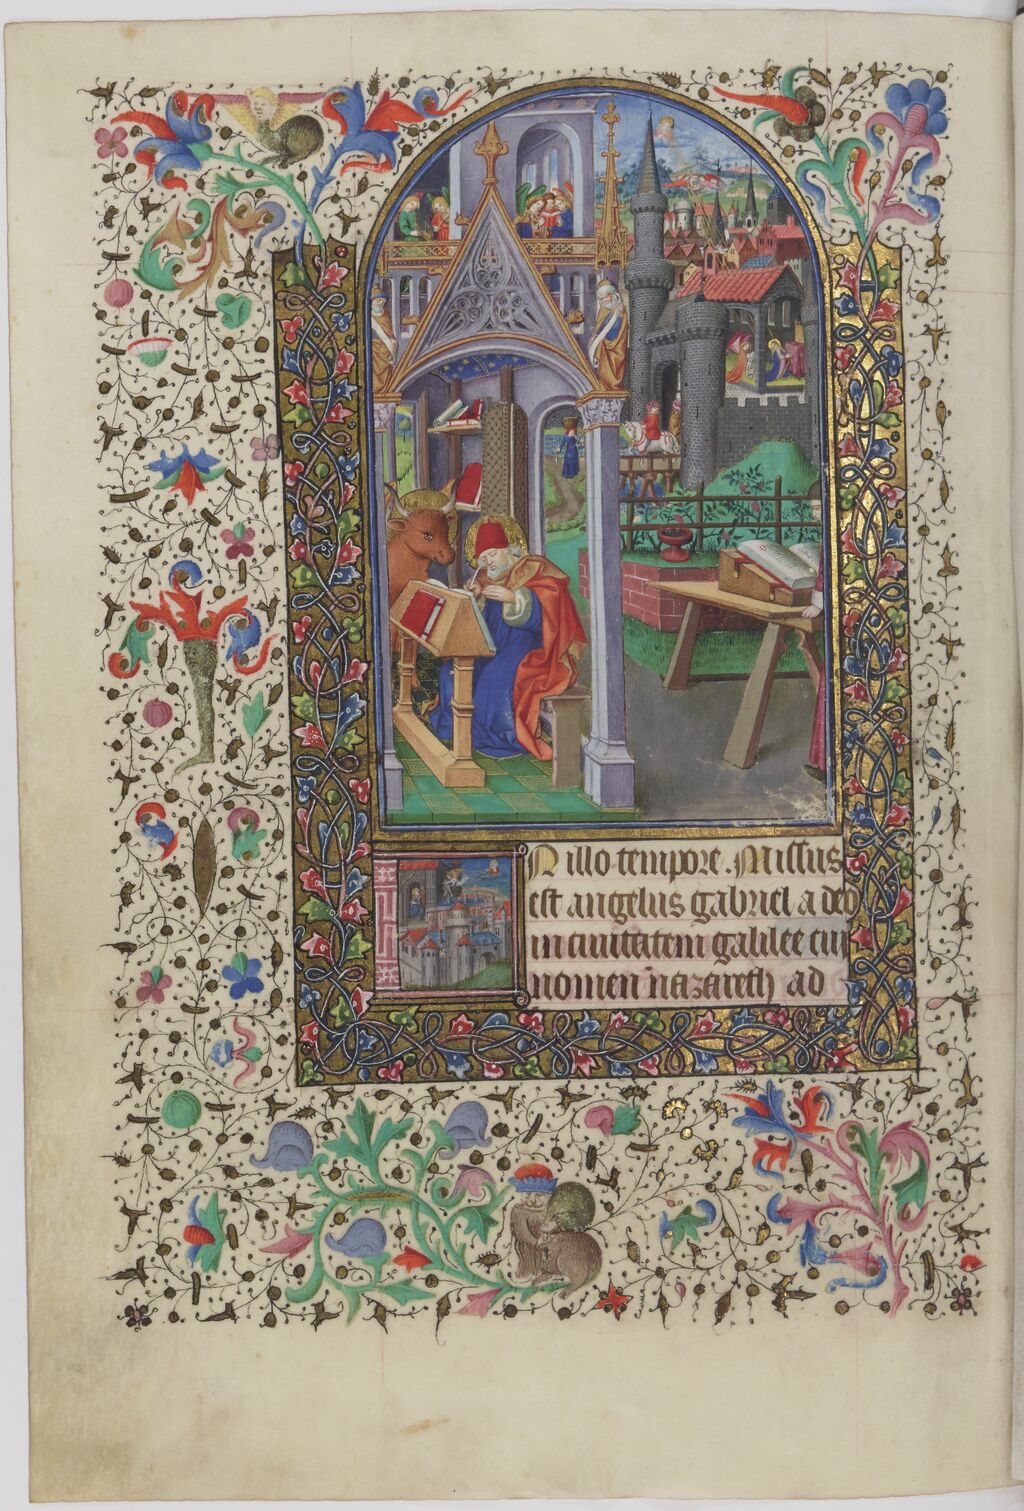 N illo tempore. Missus
est angelus gabriel a deo
in ciuitatem galilee cui
nomen nazareth ad